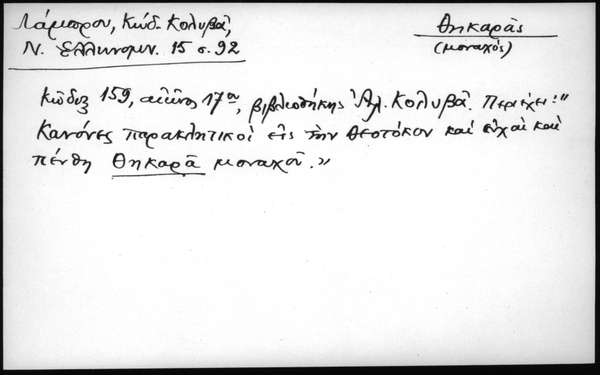 Λάμπρου, Κώδ. Κολυβᾶ,
Ν. Ἑλληνομν. 15 σ. 92
Θηκαρᾶς
(μοναχός)
Κῶδιξ 159, αἰῶνος 17ου, βιβλιοθήκης Ἀλ. Κολυβᾶ. Περιέχει: "
Κανόνες παρακλητικοὶ εἰς τὴν Θεοτόκον καὶ εὐχαὶ καὶ
πένθη Θηκαρᾶ μοναχοῦ.»